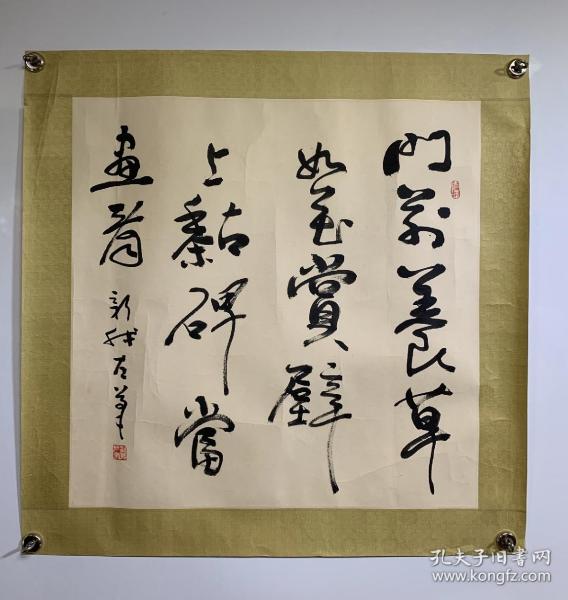 門前養草
如花賞壁
上黏碑當
畫看
孔夫子旧书网
www.kongfz.com